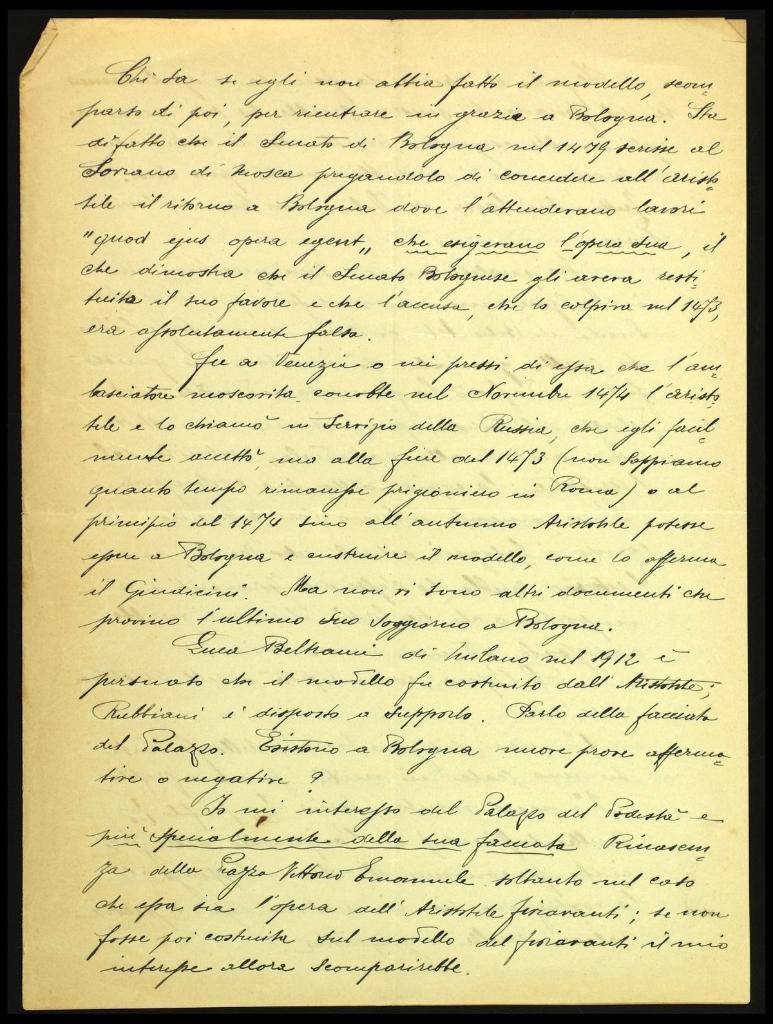 Chi sa se egli non abbia fatto il modello, scom-
parso di poi, per rientrare in grazia a Bologna. Sta
di fatto che il Senato di Bologna nel 1479 scrisse al
Sovrano di Mosca pregandolo di concedere all'aristo-
tile il ritorno a Bologna dove l'attendevano lavori
"quod ejus opera egent„ che esigevano l'opera sua, il
che dimostra che il Senato Bolognese gli aveva resti-
tuita il suo favore e che l'accusa, che lo colpiva nel 1473,
era assolutamente falsa.
Fu a Venezia o nei pressi di essa che l'am-
basciatore moscovita conobbe nel Novembre 1474 l'aristo-
tile e lo chiamò in Servizio della Russia, che egli facil-
mente accettò, ma alla fine del 1473 (non Sappiamo
quanto tempo rimanesse prigioniero in Roma) o al
principio del 1474 sino all'autunno Aristotile potesse
essere a Bologna e custruire il modello, come lo afferma
il Giudicini. Ma non vi sono altri documenti che
provino l'ultimo suo soggiorno a Bologna.
Luca Beltrami di Milano nel 1912 è
persuato che il modello fu costruito dall'Aristotile;
Rubbiani è disposto a supporlo. Parlo della facciata
del Palazzo. Esistono a Bologna nuove prove afferma-
tive o negative?
Io mi interesso del Palazzo del Podestà e
più specialmente della sua facciata Rinascen-
za della Piazza Vittorio Emanuele soltanto nel caso
che essa sia l'opera dell'Aristotile fioravanti; se non
fosse poi costruita sul modello del fioravanti il mio
interesse allora scomparirebbe.